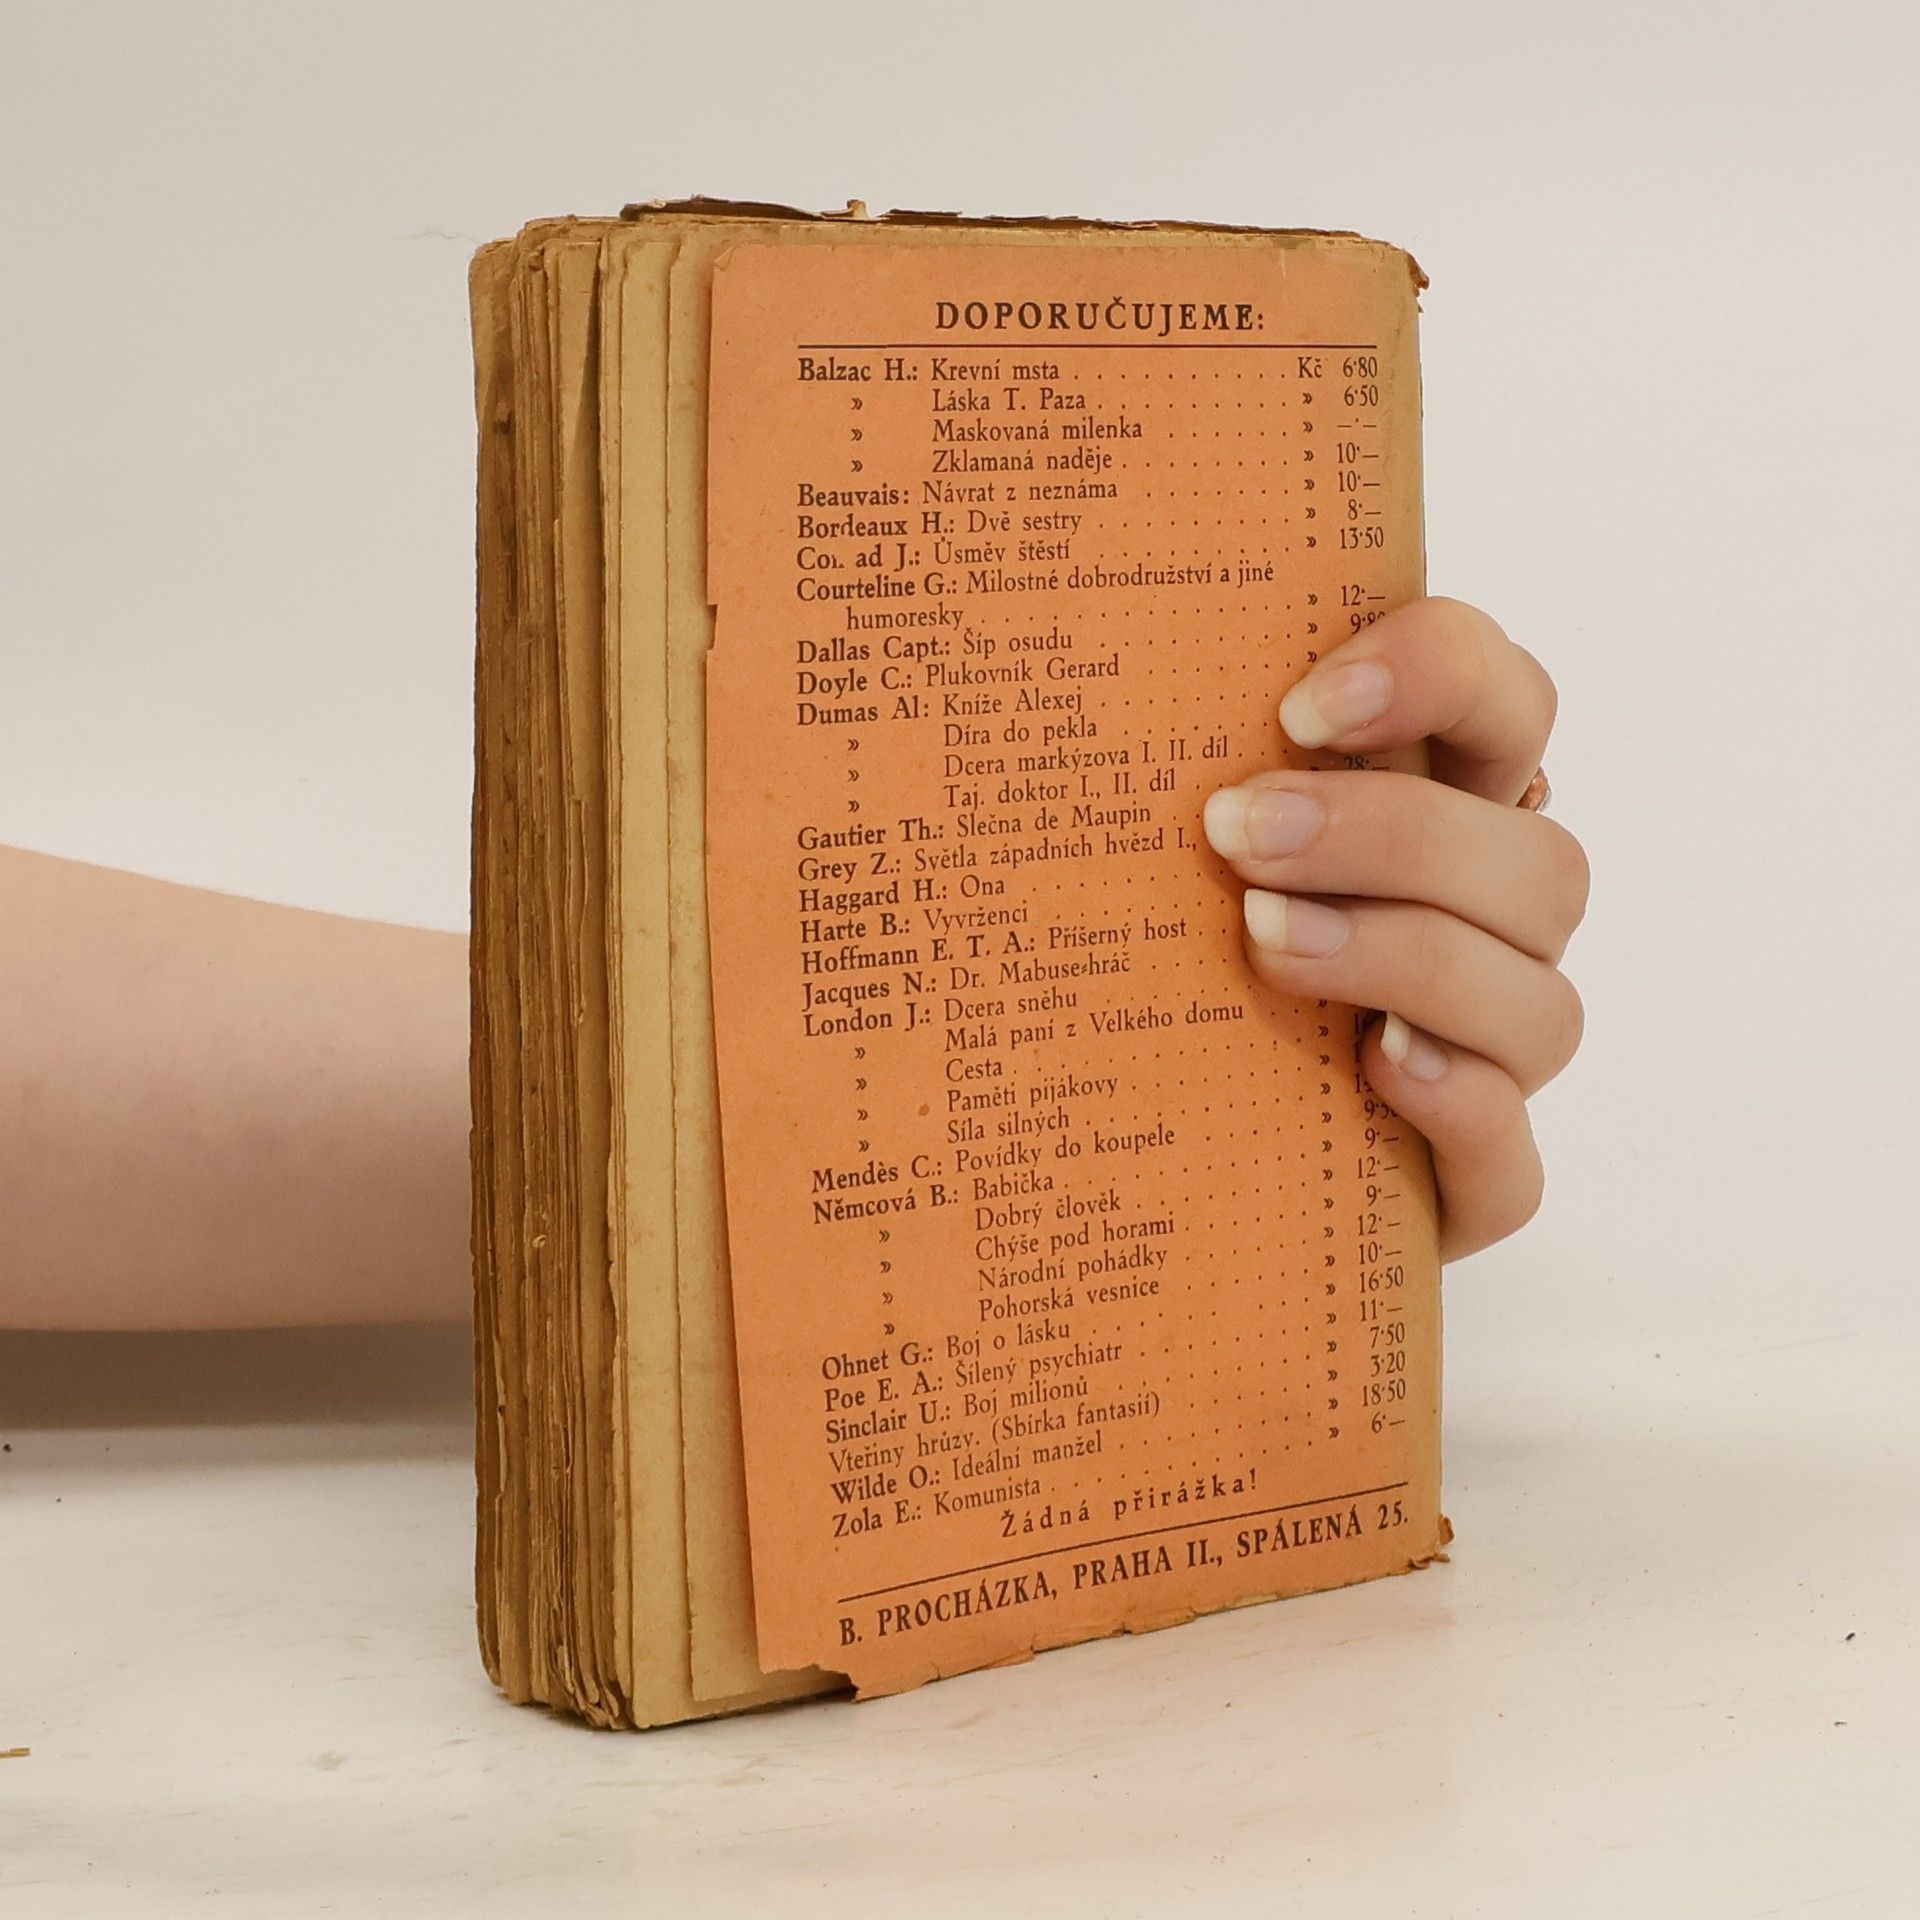 DOPORUČUJEME:
Balzac H.: Krevní msta . . . . . . . . . . Kč 6·80
» Láska T. Paza . . . . . . . . . » 6·50
» Maskovaná milenka . . . . . . » —·—
» Zklamaná naděje . . . . . . . . » 10·—
Beauvais: Návrat z neznáma . . . . . . . » 10·—
Bordeaux H.: Dvě sestry . . . . . . . . . » 8·—
Co ad J.: Úsměv štěstí . . . . . . . . . » 13·50
Courteline G.: Milostné dobrodružství a jiné
humoresky . . . . . . . . . . . . » 12·—
Dallas Capt.: Šíp osudu . . . . . . . . . »
Doyle C.: Plukovník Gerard . . . . . . . »
Dumas Al: Kníže Alexej . . . . . . . .
» Díra do pekla . . . . . .
» Dcera markýzova I. II. díl . .
» Taj. doktor I., II. díl . .
Gautier Th.: Slečna de Maupin .
Grey Z.: Světla západních hvězd I.,
Haggard H.: Ona . . . . . . . . .
Harte B.: Vyvrženci . . . . . . . .
Hoffmann E. T. A.: Příšerný host . .
Jacques N.: Dr. Mabuse-hráč . . . .
London J.: Dcera sněhu . . . . . .
» Malá paní z Velkého domu . . »
» Cesta . . . . . . . . . . . . »
» Paměti pijákovy . . . . . . . . »
» Síla silných . . . . . . . . . . »
Mendès C.: Povídky do koupele . . . . . »
Němcová B.: Babička . . . . . . . . . . » 9·—
» Dobrý člověk . . . . . . . . » 12·—
» Chýše pod horami . . . . . . » 9·—
» Národní pohádky . . . . . . » 12·—
» Pohorská vesnice . . . . . . » 10·—
Ohnet G.: Boj o lásku . . . . . . . . . . » 16·50
Poe E. A.: Šílený psychiatr . . . . . . . . » 11·—
Sinclair U.: Boj milionů . . . . . . . . . » 7·50
Vteřiny hrůzy. (Sbírka fantasií) . . . . . . » 3·20
Wilde O.: Ideální manžel . . . . . . . . . » 18·50
Zola E.: Komunista . . . . . . . . . . . » 6·—
Žádná přirážka!
B. PROCHÁZKA, PRAHA II., SPÁLENÁ 25.